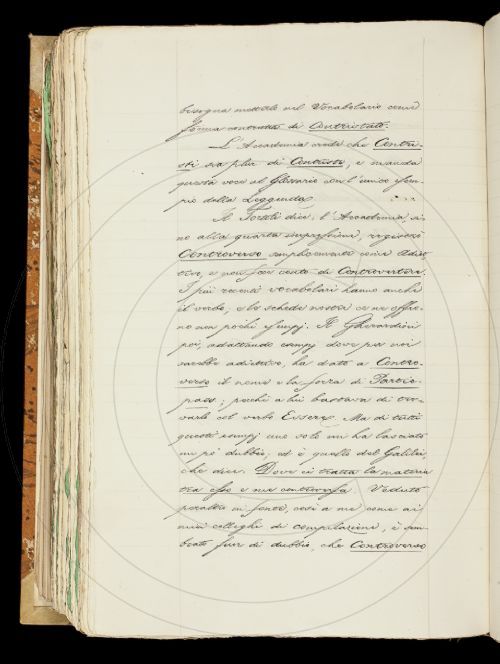 bisogna metterlo nel Vocabolario come
forma contratta di Contristato.
L'Accademia crede che Contri-
sti sia plur. di Contristo, e manda
questa voce al Glossario con l'unico esem-
pio della Leggenda
Il Tortoli dice: l'Accademia, si-
no alla quarta impressione, registrò
Controverso semplicemente come Adiet-
tivo, e non fece conto di Controvertere.
I più recenti vocabolari hanno anche
il verbo, e le schede nostre ce ne offro-
no non pochi esempj. Il Gherardini
poi, adattando esempj dove per noi
sarebbe adiettivo, ha dato a Contro-
verso il nome e la forza di Partici-
; perchè a lui bastava di tro-
varlo col verbo Essere. Ma di tutti
questi esempj uno solo mi ha lasciato
un po' dubbio, ed è quello del Galileo,
che dice: Dove si tratta la materia
tra esso e me controversa. Veduto
peraltro in fonte, così a me come ai
miei colleghi di compilazione, è sem-
brato fuor di dubbio, che Controverso